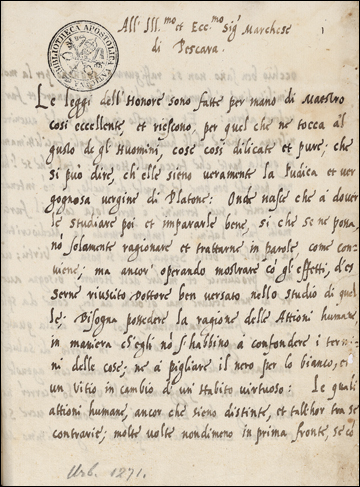 BIBLIOTHECA APOSTOLICA VATICANA
All' Ill.mo et Ecc.mo Sig.r Marchese
di Pescara.
Le leggi dell'Honore sono fatte per mano di Maestro
così eccellente, et riescono, per quel che ne tocca al
gusto de gl'Huomini, cose così dilicate et pure; che
si può dire, ch'elle sieno veramente la pudica et ver
gognosa vergine di Platone: Onde nasce che à dover
le studiare poi et impararle bene, si che se ne possa,
nò solamente ragionare et trattarne in parole come con-
uiene; ma ancor' operando mostrare cò gl'effetti, d'es
serne riuscito Dottore ben versato nello studio di quel
le; Bisogna possedere la ragione delle Attioni humane
in maniera ch'egli nò s'habbino à confondere i termi-
ni delle cose; ne à pigliare il nero per lo bianco, et
un Vitio in cambio d'un Habito virtuoso: Le quali
attioni humane, ancor che sieno distinte, et talhor tra se
contrarie; molte volte nondimeno in prima fronte, se cò
Urb. 1271.